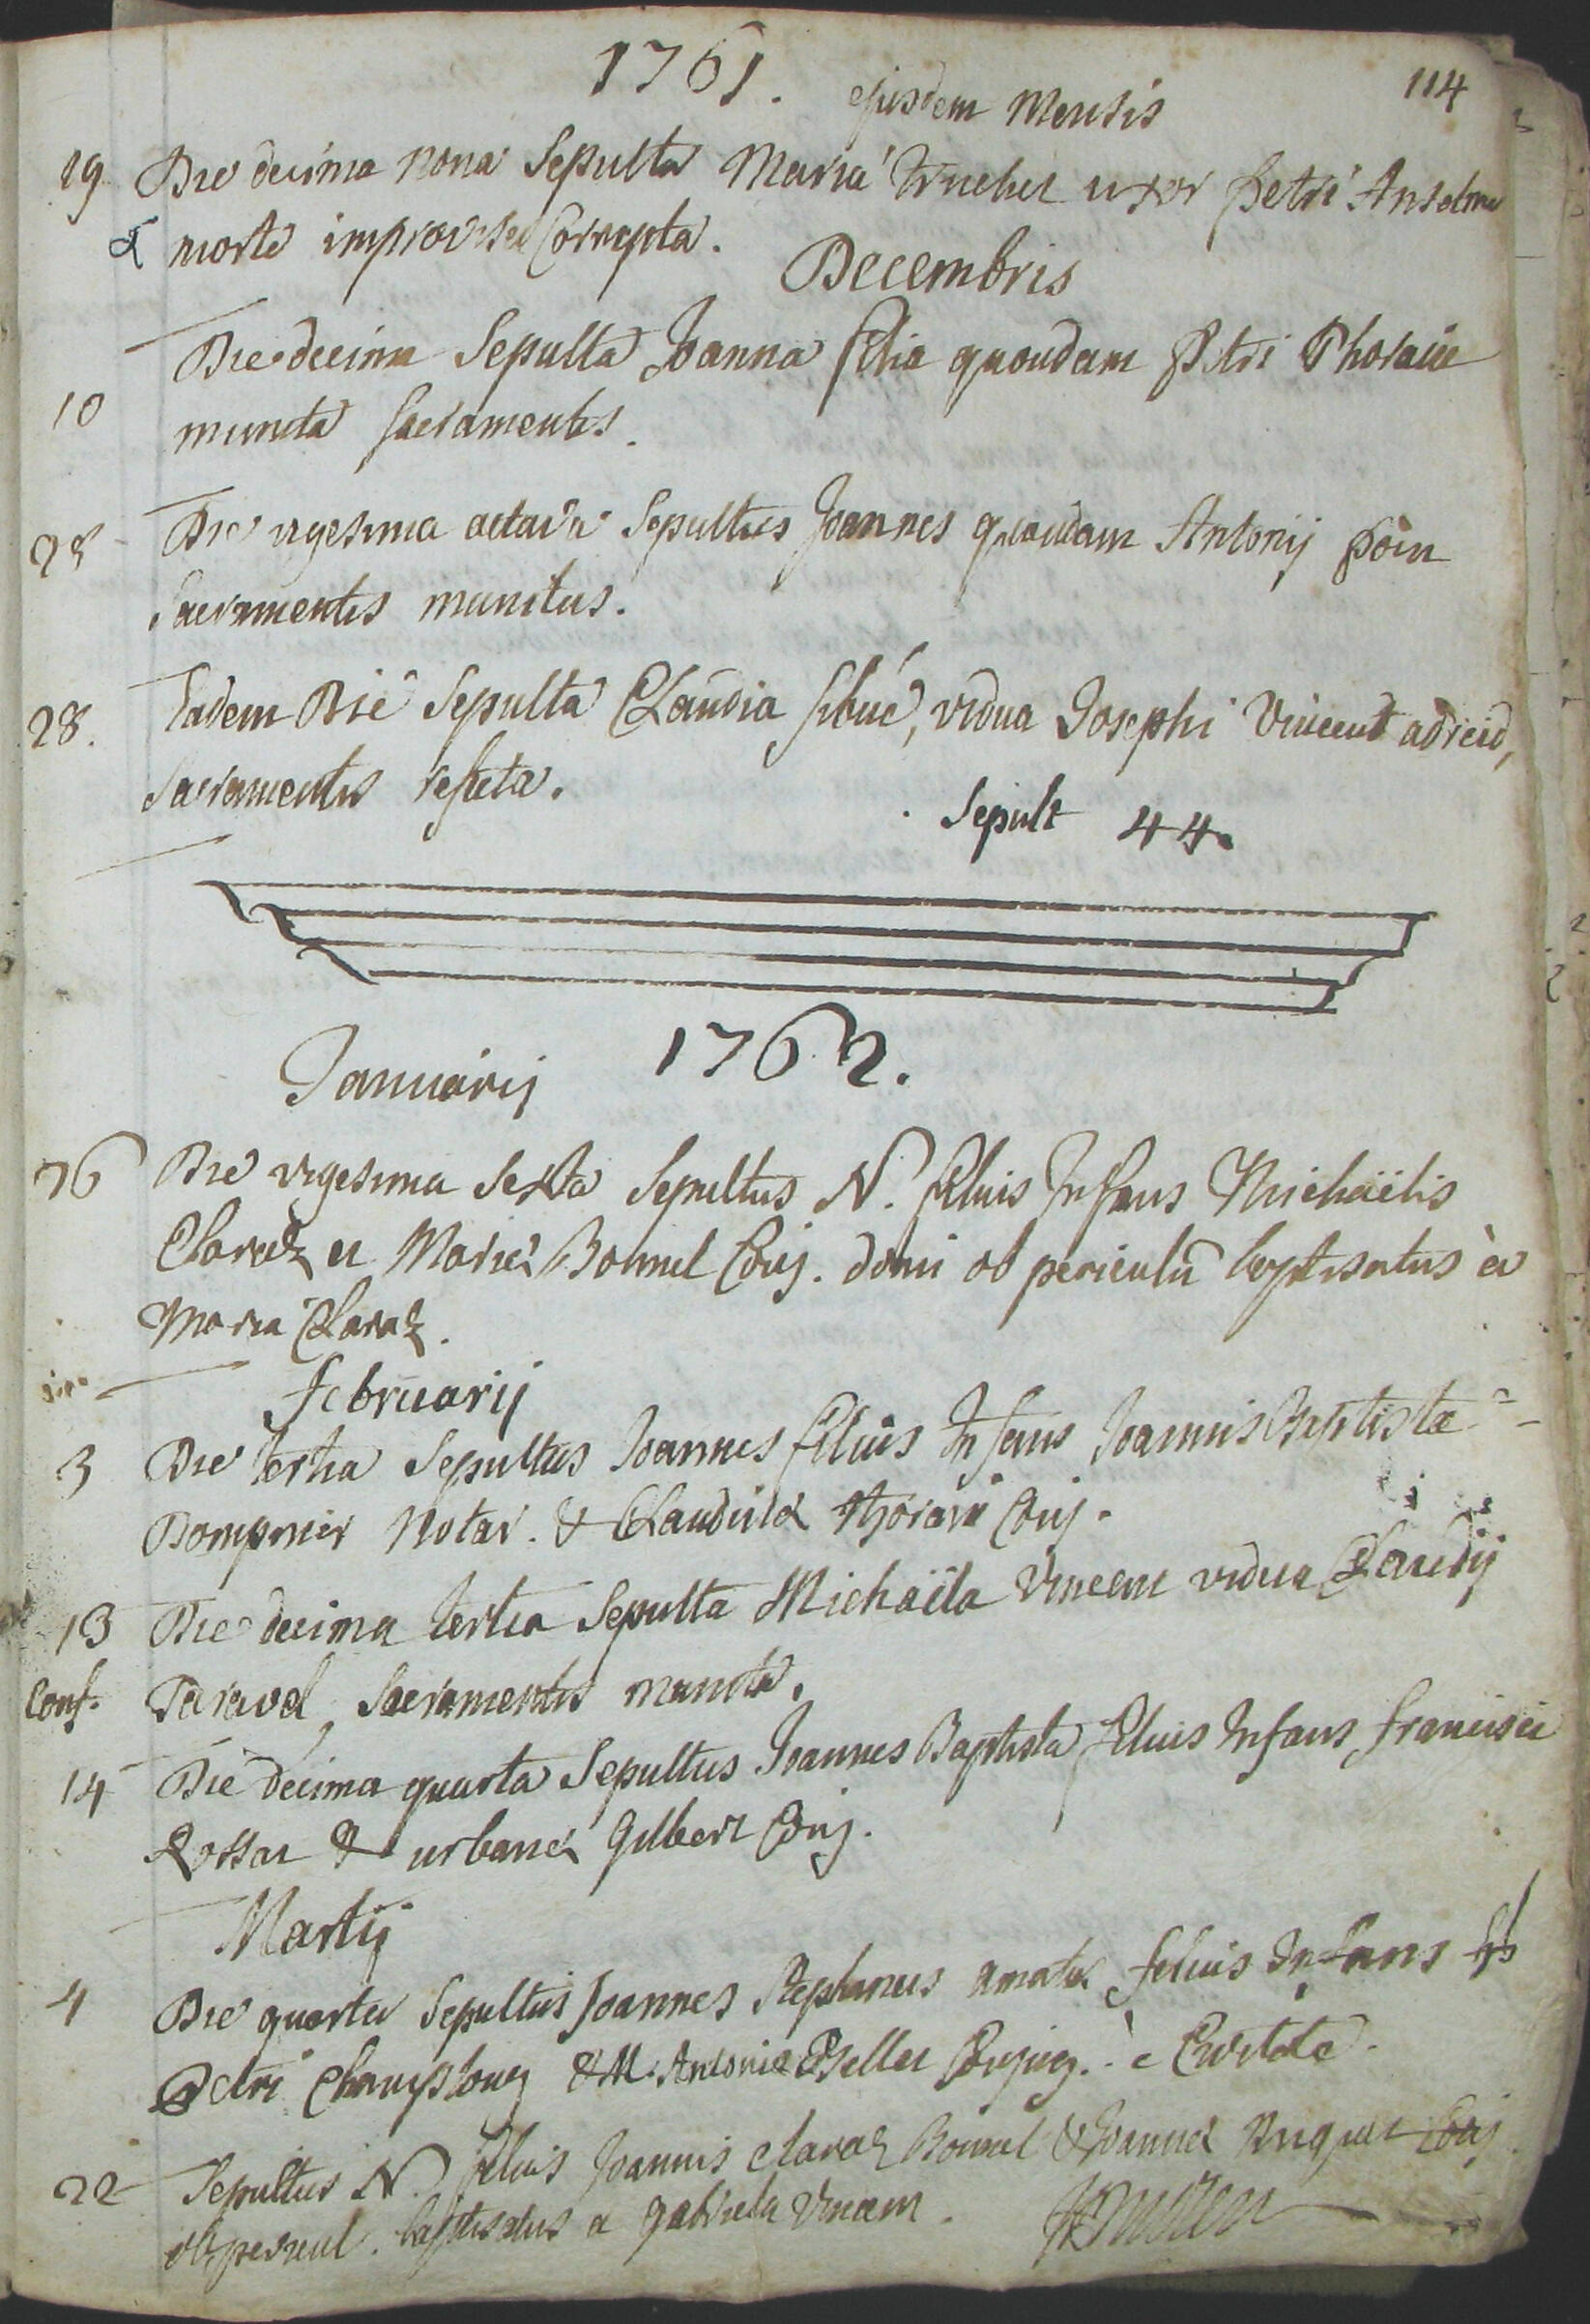 1761. ejusdem Mensis 114
19 Die decima nona Sepulta Maria Truchet uxor Petri Anselme
morte improvisa Correpta.
Decembris
10 Die decima Sepulta Joanna filia quondam Petri Thorain
munita Sacramentis.
28 Die vigesima octava Sepultus Joannes quondam Antonij
Sacramentis munitus.
28. Eadem Die Sepulta Claudia sibué, vidua Josephi Vincend
Sacramentis refecta.
Sepult 44.
Januarij 1762.
26 Die vigesima Sexta Sepultus N. filius Infans Michaëlis
Claraz et Mariæ Bonnel Conj. domi ob periculũ baptisatus à
Maria Claraz.
februarij
3 Die tertia Sepultus Joannes filius Infans Joannis Baptistæ
Dompnier Notar. & Claudinæ thorain Conj.
13 Die decima tertia Sepulta Michaëla Vincent vidua Claudij
Conf. Taravel, Sacramentis munita.
14 Die decima quarta Sepultus Joannes Baptista filius Infans francisci
Rossat & urbanæ Gilbert Conj.
Martij
4 Die quarta Sepultus Joannes Stephanus filius Infans
Petri Champlong & M. Antoniæ Conjug. è Civitate.
22 Sepultus N. filius Joannis Claraz Bonnel & Joannæ Conj
ob pericul. baptisatus a gabriela Vincent.